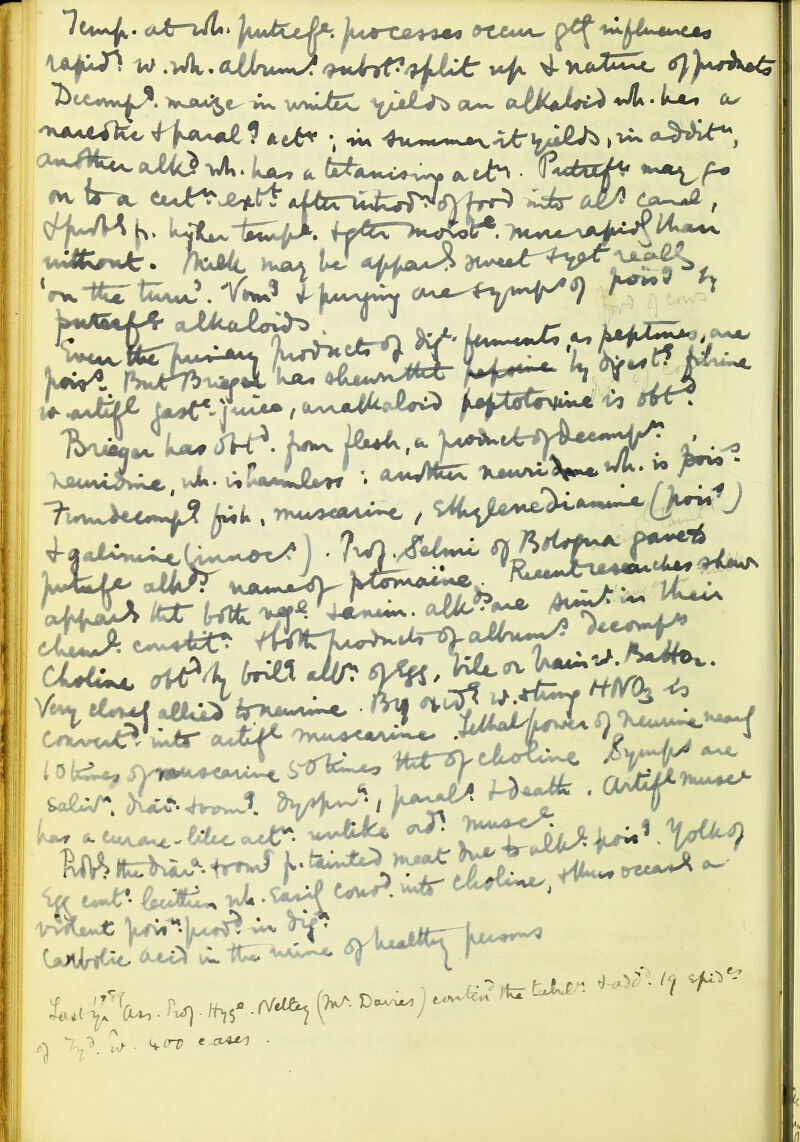 Temp. at wh. putrefe. processes occur gtly influences
rapidy w. wh. albums. substs. split up & nature of products
Decompg. maize in winter yields an alkaloid wh. has a
narcotic & paralg actn; in summer it yields, in additn,
another alkd wh. has a tetanising actn. Putrefn may go
on to a certn extt after introdn of food into aly canal,
& probly fr. higher tempe. & gter moiste. more rapidly than
without. Milk may be appary sweet & yet really
'on the turn'. Vomg & purging are symps of poisg by
food of cows
putrefe alkaloids.
Even the primary products of dige. ferments, as peptones, are
poiss. But Brieger has shewn tht by digestg fibrine
w artifl gaste. juice, an alkaloid peptotoxine is obtd.
Brieger has obtd. from flesh, a product of decompn
neuridine, wh. is harmless: another neurine wh. is poiss.
From decompg fish, muscarine, Ethylenediamine (poiss)
& gadinine (innocs). Prof. Selmi of Bologna gave to
putrefe alkds name of ptomaïne. Recent researches shew
appary tht both vege. & anim. alkds are simr. in their
cheml. constitn. & both products of albums. decompn
Choline obtd by boilg albn. of Egg, bile or brain w. BaH2O2.
Very closely allied to neurine. By oxidg w. strong HNO3 is
convertd. into artifl muscarine. Lethal power of neurine nearly
10 times of muscarine 50 times tht of choline Symps are
salivn. diarr. & vomg. dyspna, paraly. & death. Artifl musce
has a curare-like actn. unlike ordy musce.
Probly the diara. & vomg fr. tainted meat due to alkl. poisg. Yolk of
Egg conts. lecithin wh. easily convd. into choline, & thus occasly a
violent poisn. prodd. in dign.
Carbolic acid in the urine of healthy persons
Last yr Ass. Prof. Hyge. Netley (Mr. Davies) contind the tabln. & addd. 19 epides
of Tyd. w. 400 cases.